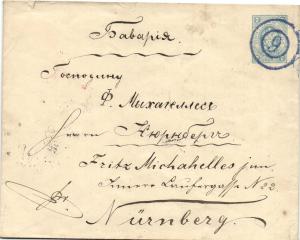 Бавария.
Господину
Ф. Михахеллес
Herrn Нюрнберг
Fritz Michahelles jun.
Innere Laufergasse No 22.
Nürnberg.